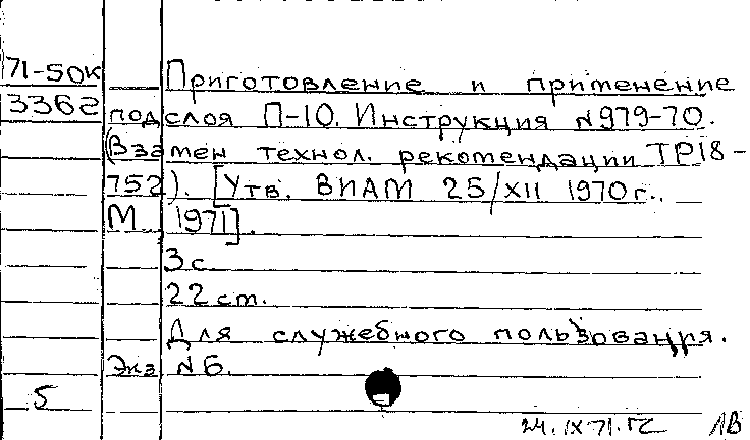 71-50к Приготовление и применение
3362 подслоя П-10. Инструкция №979-70.
(Взамен технол. рекомендации ТР18-
752). [Утв. ВИАМ 25/XII 1970г..
М 1971].
3с
22 ст.
Для служебного пользования.
Экз №6.
5
24.IX.71.ГС ЛВ